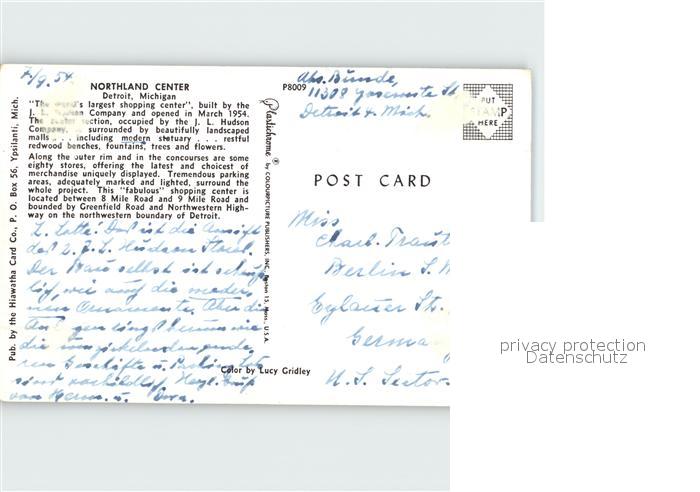 7/9. 54.
NORTHLAND CENTER
Detroit, Michigan
"The world's largest shopping center", built by the
J. L. Hudson Company and opened in March 1954.
The center section, occupied by the J. L. Hudson
Company, is surrounded by beautifully landscaped
malls . . . including modern statuary . . . restful
redwood benches, fountains, trees and flowers.
Along the outer rim and in the concourses are some
eighty stores, offering the latest and choicest of
merchandise uniquely displayed. Tremendous parking
areas, adequately marked and lighted, surround the
whole project. This "fabulous" shopping center is
located between 8 Mile Road and 9 Mile Road and
bounded by Greenfield Road and Northwestern High-
way on the northwestern boundary of Detroit.
L. Lotte! Das ist die Ansicht
des 2. J. L. Hudson Store.
Der Bau selbst ist
wie auch die
Ornamente. Aber die
wie
die
Geschäfte u.
sind vorbildlich. Herzl. Gruß
von Herm. u. Dora.
Pub. by the Hiawatha Card Co., P. O. Box 56, Ypsilanti, Mich.
P8009
Plastichrome ® by COLOURPICTURE PUBLISHERS, INC., Boston 15, Mass., U.S.A.
Color by Lucy Gridley
Abs. Bunde,
11309 Yosemite St
Detroit 4. Mich.
PUT
STAMP
HERE
POST CARD
Miss
Charl. Traut
Berlin S.W
Eylauer St.
Germa
U. S. Sector.
privacy protection
Datenschutz